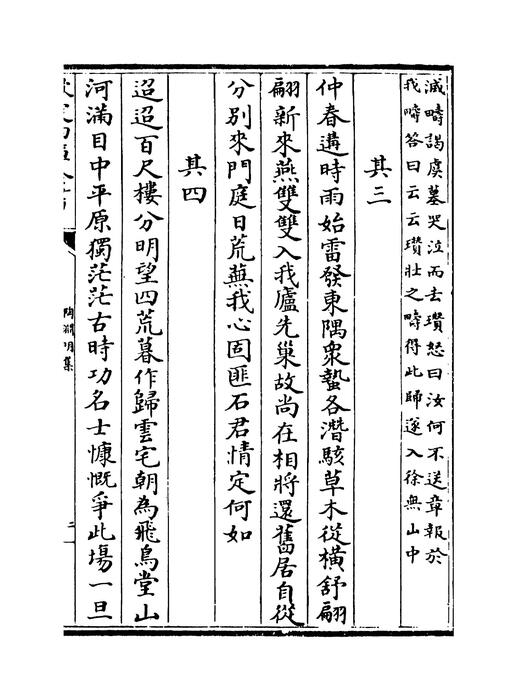 滅疇謁虞墓哭泣而去瓚怒曰汝何不送章報於
我疇答曰云云瓚壯之疇得此歸遂入徐無山中
其三
仲春遘時雨始雷發東隅衆蟄各潛駭草木從橫舒翩
翩新來燕雙雙入我廬先巢故尚在相將還舊居自從
分別來門庭日荒蕪我心固匪石君情定何如
其四
迢迢百尺樓分明望四荒暮作歸雲宅朝為飛鳥堂山
河滿目中平原獨茫茫古時功名士慷慨爭此塲一旦
陶淵明集